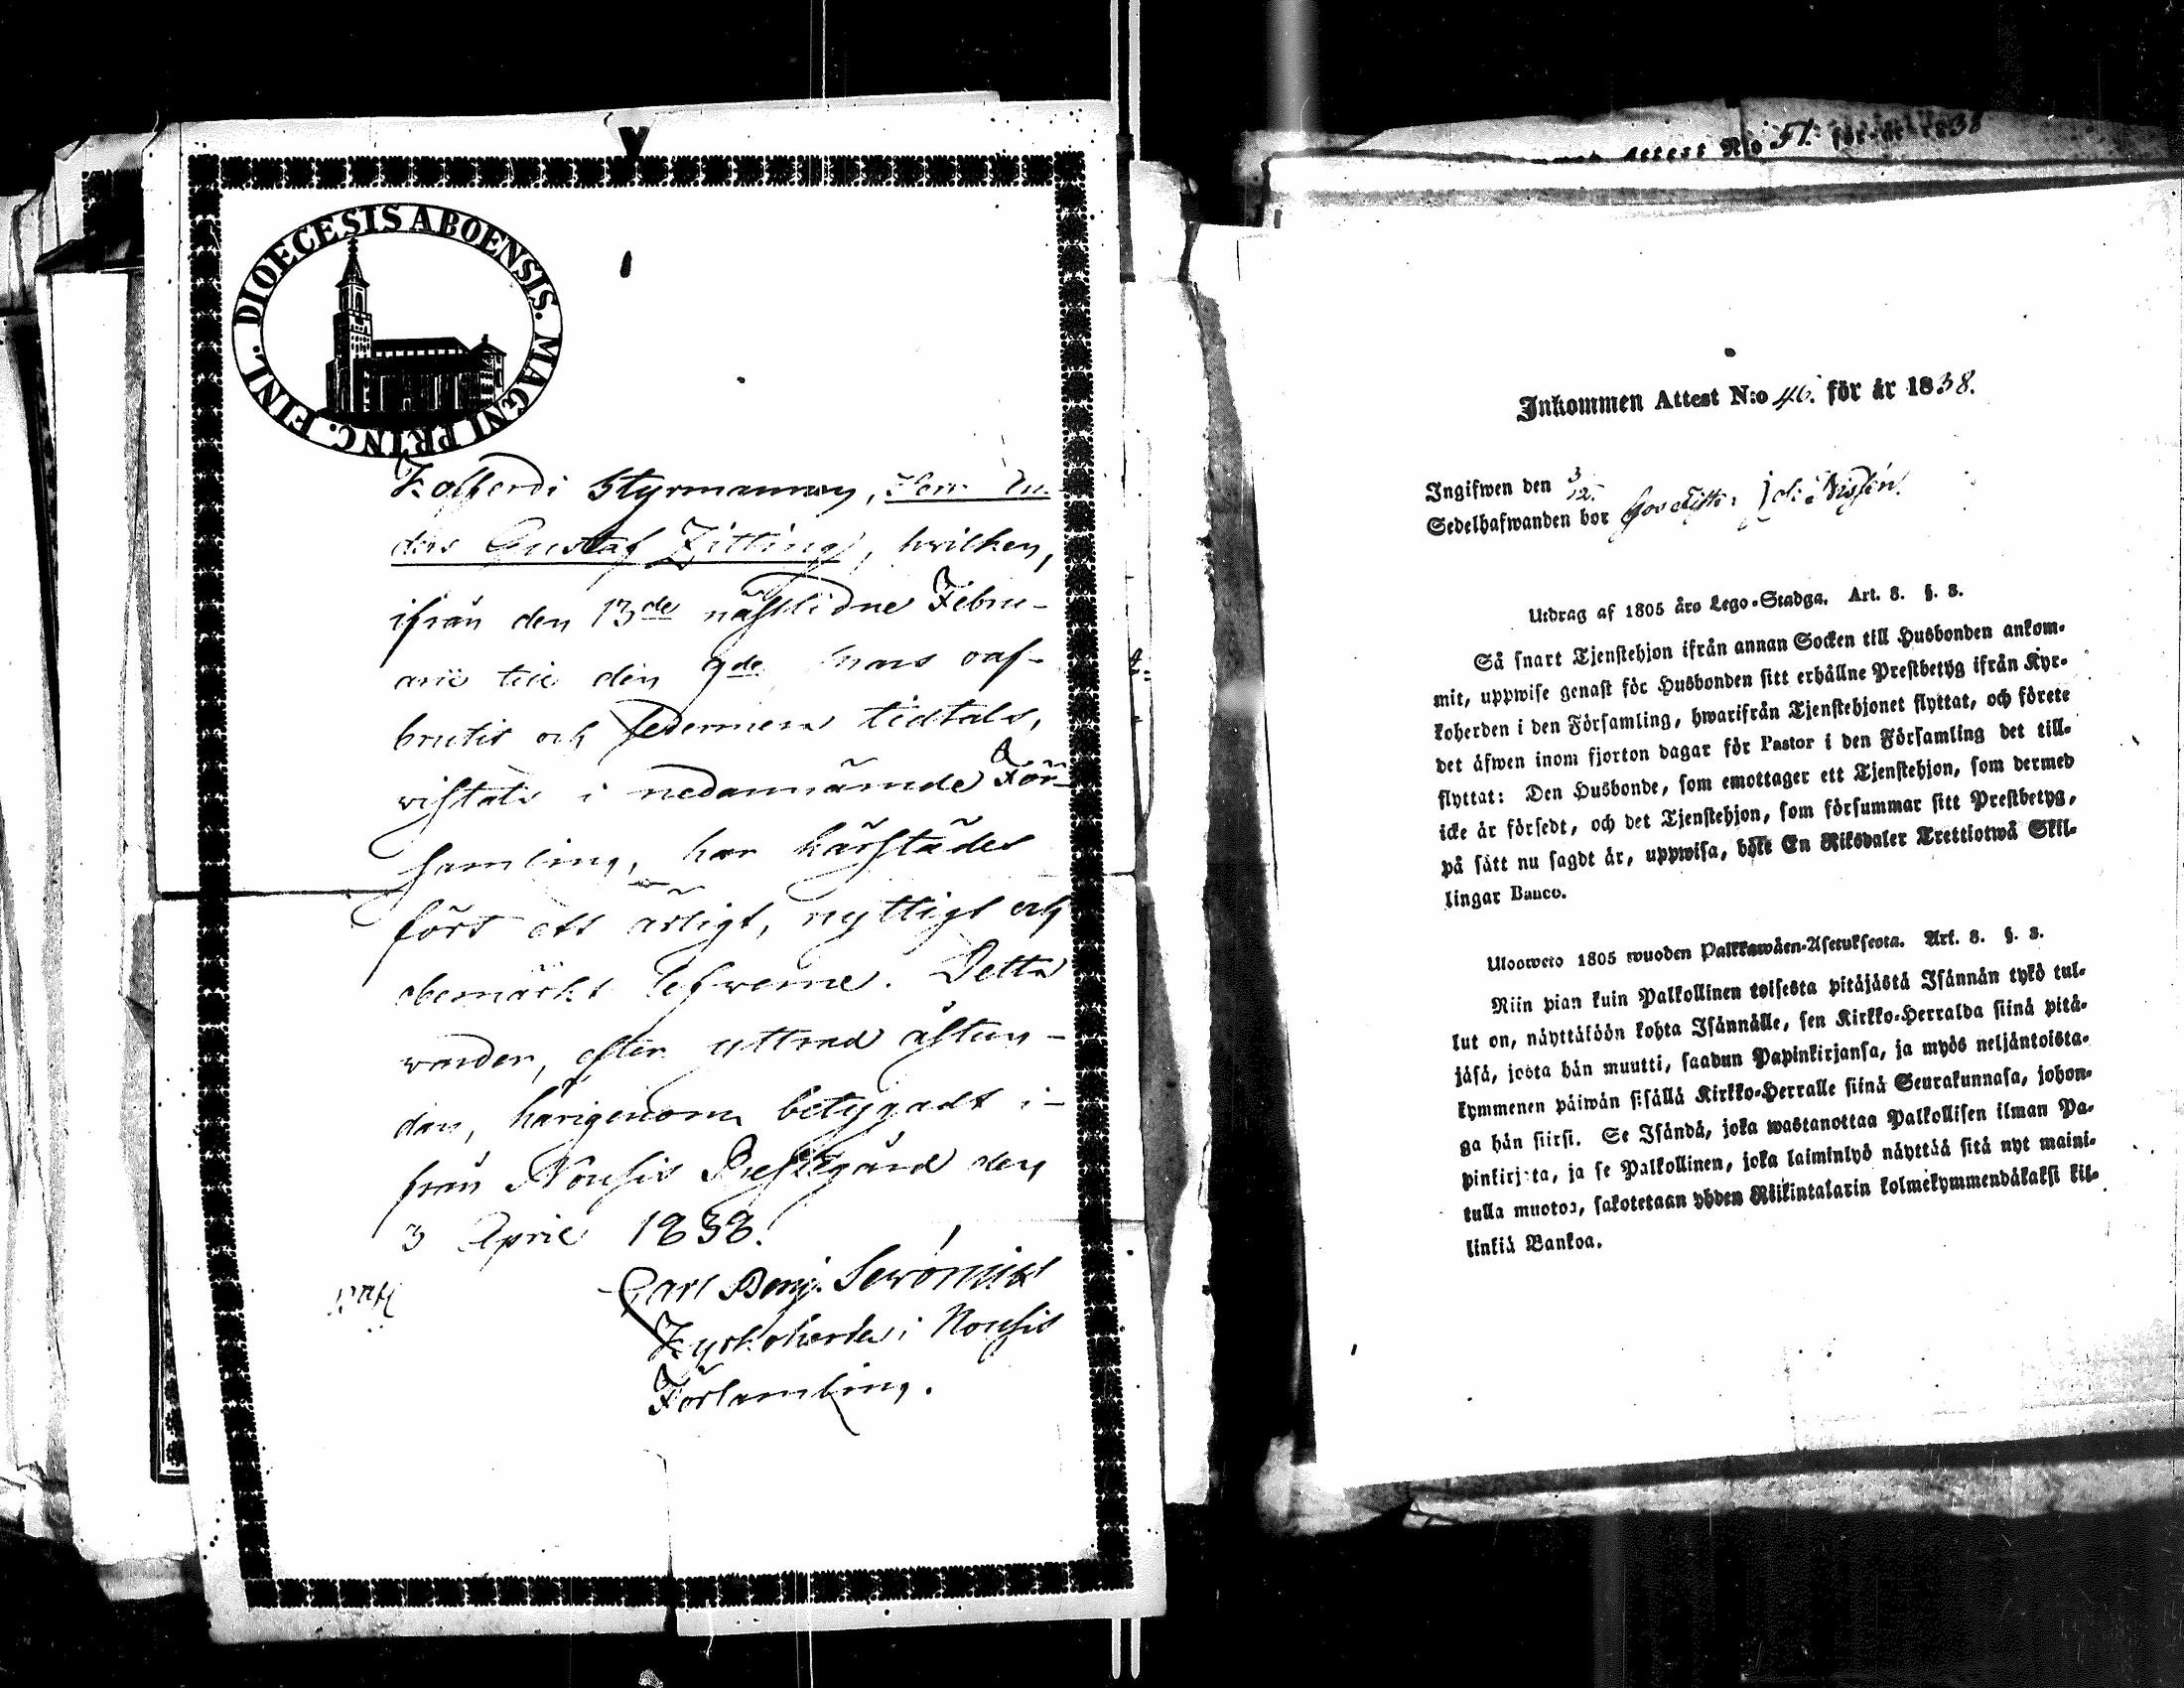 DIOECESIS ABOENSIS. MAGNI PRINC. FINL.
Kofferdi Styrmannen, Herr An-
ders Gustaf Zitting, hvilken,
ifrån den 13de nästlidne Febru-
arii till den 9de Mars oaf-
brutit och sedermera tidtals,
vistats i nedannämde För-
samling, har härstädes
fört ett ärligt, nyttigt och
obemärkt lefverne. Detta
warder, efter yttrad åstun-
dan, härigenom betygadt i-
från Nousis Prestgård den
3 April 1838.
Carl Benj.
Kyrkoherde i Nousis
Församling.
Attest No 51. för år 1838
Inkommen Attest N:o 46. för år 1838.
Ingifwen den 3/12.
Sedelhafwanden bor
Utdrag af 1805 års Lego-Stadga. Art. 8. §. 8.
Så snart Tjenstehjon ifrån annan Socken till Husbonden ankom-
mit, uppwise genast för Husbonden sitt erhållne Prestbetyg ifrån Kyr-
koherden i den Församling, hwarifrån Tjenstehjonet flyttat, och förete
det äfwen inom fjorton dagar för Pastor i den Församling det till-
flyttat: Den Husbonde, som emottager ett Tjenstehjon, som dermed
icke är försedt, och det Tjenstehjon, som försummar sitt Prestbetyg,
på sätt nu sagdt är, uppwisa, böte En Riksdaler Trettiotwå Skil-
lingar Banco.
Ulosweto 1805 wuoden Palkkawäen-Asetuksesta. Art. 8. §. 8.
Niin pian kuin Palkollinen toisesta pitäjästä Isännän tykö tul-
lut on, näyttäköön kohta Isännälle, sen Kirkko-Herralda siinä pitä-
jäsä, josta hän muutti, saadun Papinkirjansa, ja myös neljäntoista-
kymmenen päiwän sisällä Kirkko-Herralle siinä Seurakunnasa, johon-
ga hän siirsi. Se Isändä, joka wastanottaa Palkollisen ilman Pa-
pinkirjata, ja se Palkollinen, joka laiminlyö näyttää sitä nyt maini-
tulla muotoa, sakotetaan yhden Riikintalarin kolmekymmendäkaksi kil-
linkiä Bankoa.